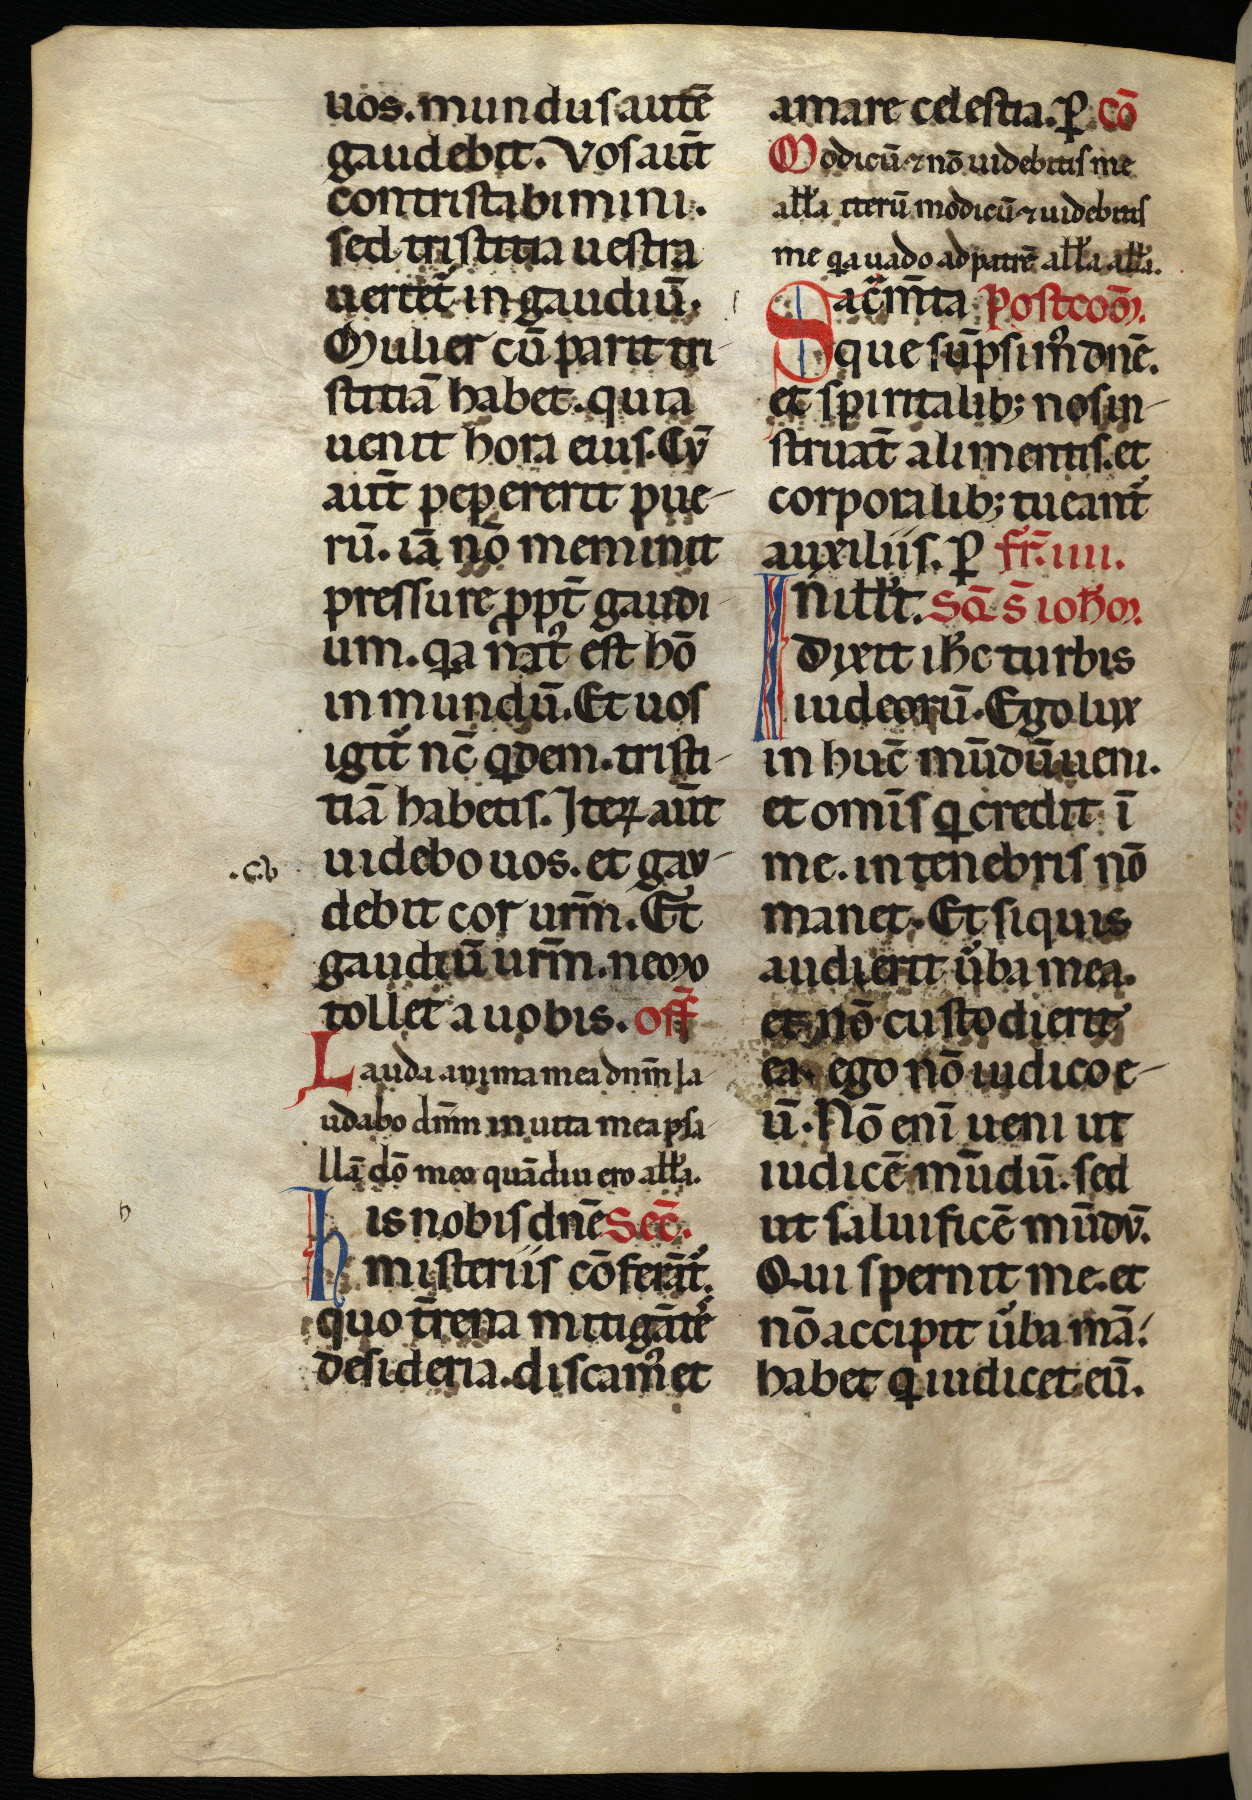 uos. mundus autē
gaudebit. Vos aut̄
contristabimini.
sed tristitia uestra
uertet᷑ in gaudiū.
Mulier cū parit tri-
stitiā habet. quia
uenit hora eius. Cū
aut̄ pepererit pue-
rū. iā nō meminit
pressure ꝓpt̄ gaudi-
um. qͥa natꝰ est hō
in mundū. Et uos
igit᷑ nc̄ qͥdem. tristi-
tiā habetis. Iteꝝ aūt
.c.b
uidebo uos. et gau-
debit cor ur̄m. Et
gaudiū ur̄m. nemo
tollet a uobis. off̄
Lauda anima mea dn̄m la-
udabo dn̄m in uita mea psa-
llā dō meo quādiu ero all̄a.
h
his nobis dn̄e Sec̄.
misteriis cōferat᷑.
quo t̄rena mitigātes
desideria. discamꝰ et
amare celestia. ꝑ. cō
Modicū ⁊ nō uidebitis me
all̄a iterū modicū ⁊ uidebitis
me qͥa uado ad patrē all̄a all̄a.
Sac̄m̄ta Postcom̄.
que sūpsimꝰ dn̄e.
et spiritalibꝫ nos in-
struāt alimentis. et
corporalibꝫ tueant᷑
auxiliis. ꝑ fr̄. iiii.
In ill̄ t. Sc̄d s̄ ioh̄m.
Dixit ih̄c turbis
iudeorū. Ego lux
in hūc mūdū ueni.
et omīs qͥ credit ī
me. in tenebris nō
manet. Et siquis
audierit ūba mea.
et nō custodierit
ea. ego nō iudico e-
ū. Nō enī ueni ut
iudicē mūdū. sed
ut saluificē mūdū.
Qui spernit me. et
nō accipit ūba mā.
habet qͥ iudicet eū.